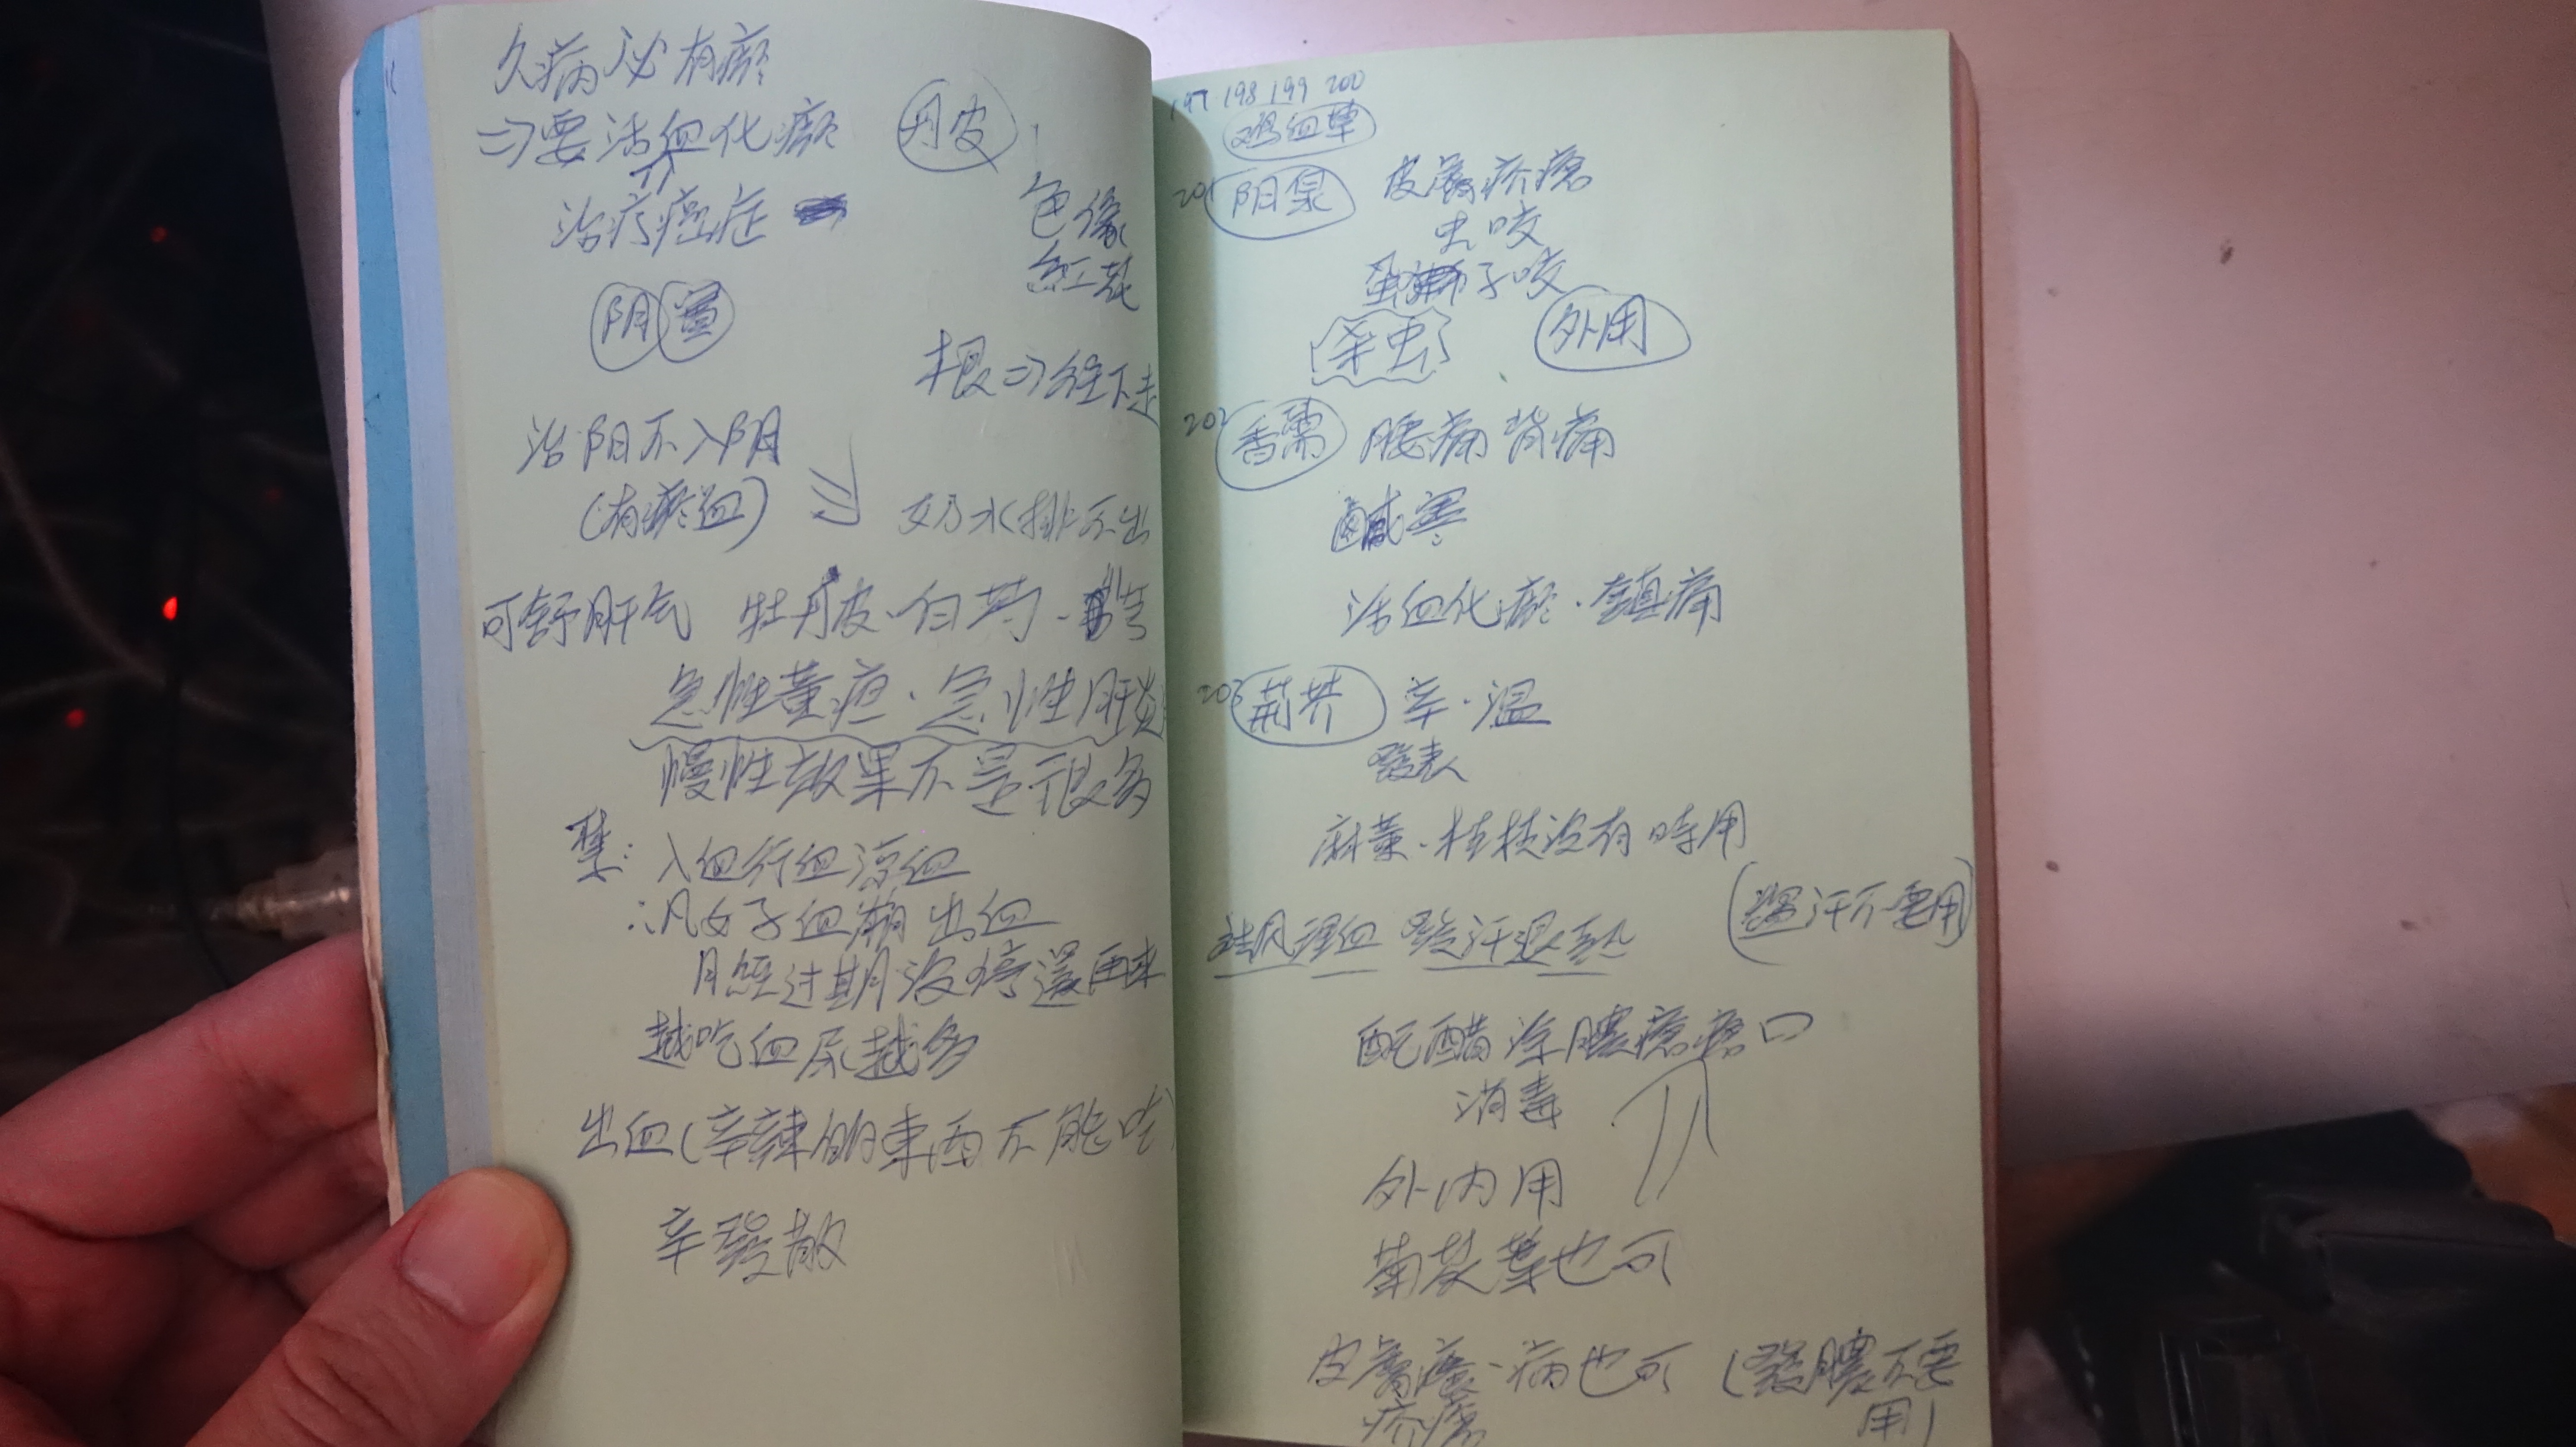 久病必有瘀
=>要活血化瘀
丹皮
治疗癌症
色像
紅花
阴
根=>往下走
治阳不入阴
(有瘀血)
奶水排不出
可舒肝气 牡丹皮、白芍、
急性黄疸、急性肝炎
慢性效果不是很多
禁: 入血行血凉血
∴凡女子血崩出血
月經过期没停還再来
越吃血尿越多
出血(辛辣的東西不能吃)
辛發散
197 198 199 200
鸡血草
201 皮膚疥瘡
虫咬
子咬
杀虫
外用
202 香薷 腰痛背痛
鹹寒
活血化瘀、鎮痛
203 荊芥 辛、温
發表
麻黄、桂枝没有時用
祛风理血 發汗退热
汗不要用)
配醋涂膿瘡瘡口
消毒
外内用
菊花葉也可
皮膚 病也可 (發膿不要
疥瘡
用)